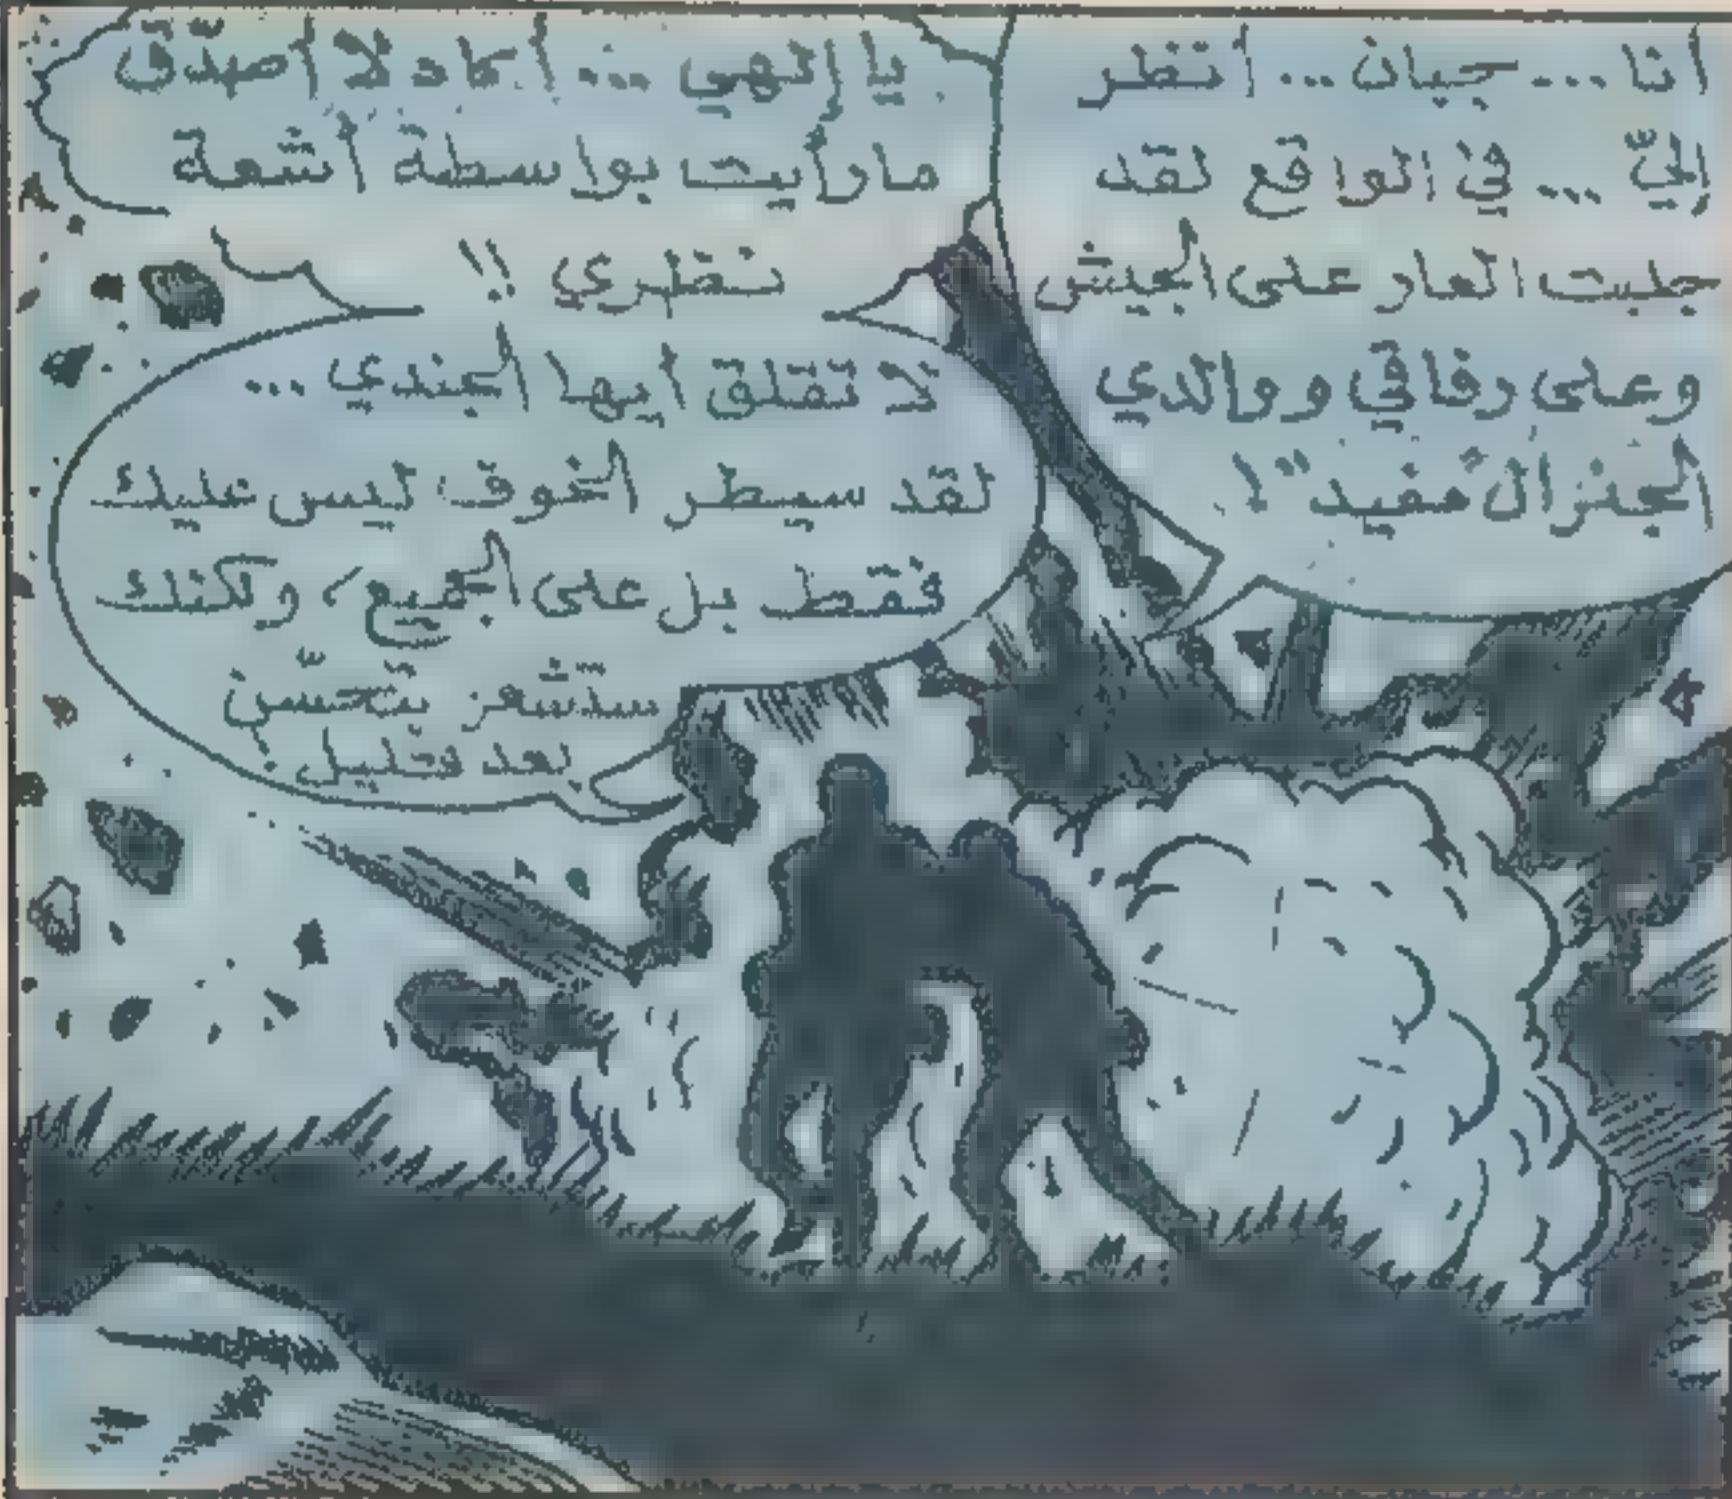 أنا ... جبان ... أنظر
إليّ ... في الواقع لقد
جلبت العار على الجيش
وعلى رفاقي ووالدي
الجنرال "مفيد" !
يا إلهي ... أكاد لا أصدّق
ما رأيت بواسطة أشعة
نظري !!
لا تقلق ايها الجندي ...
لقد سيطر الخوف ليس عليك
فقط بل على الجميع ، ولكنك
ستشعر بتحسّن
بعد قليل !